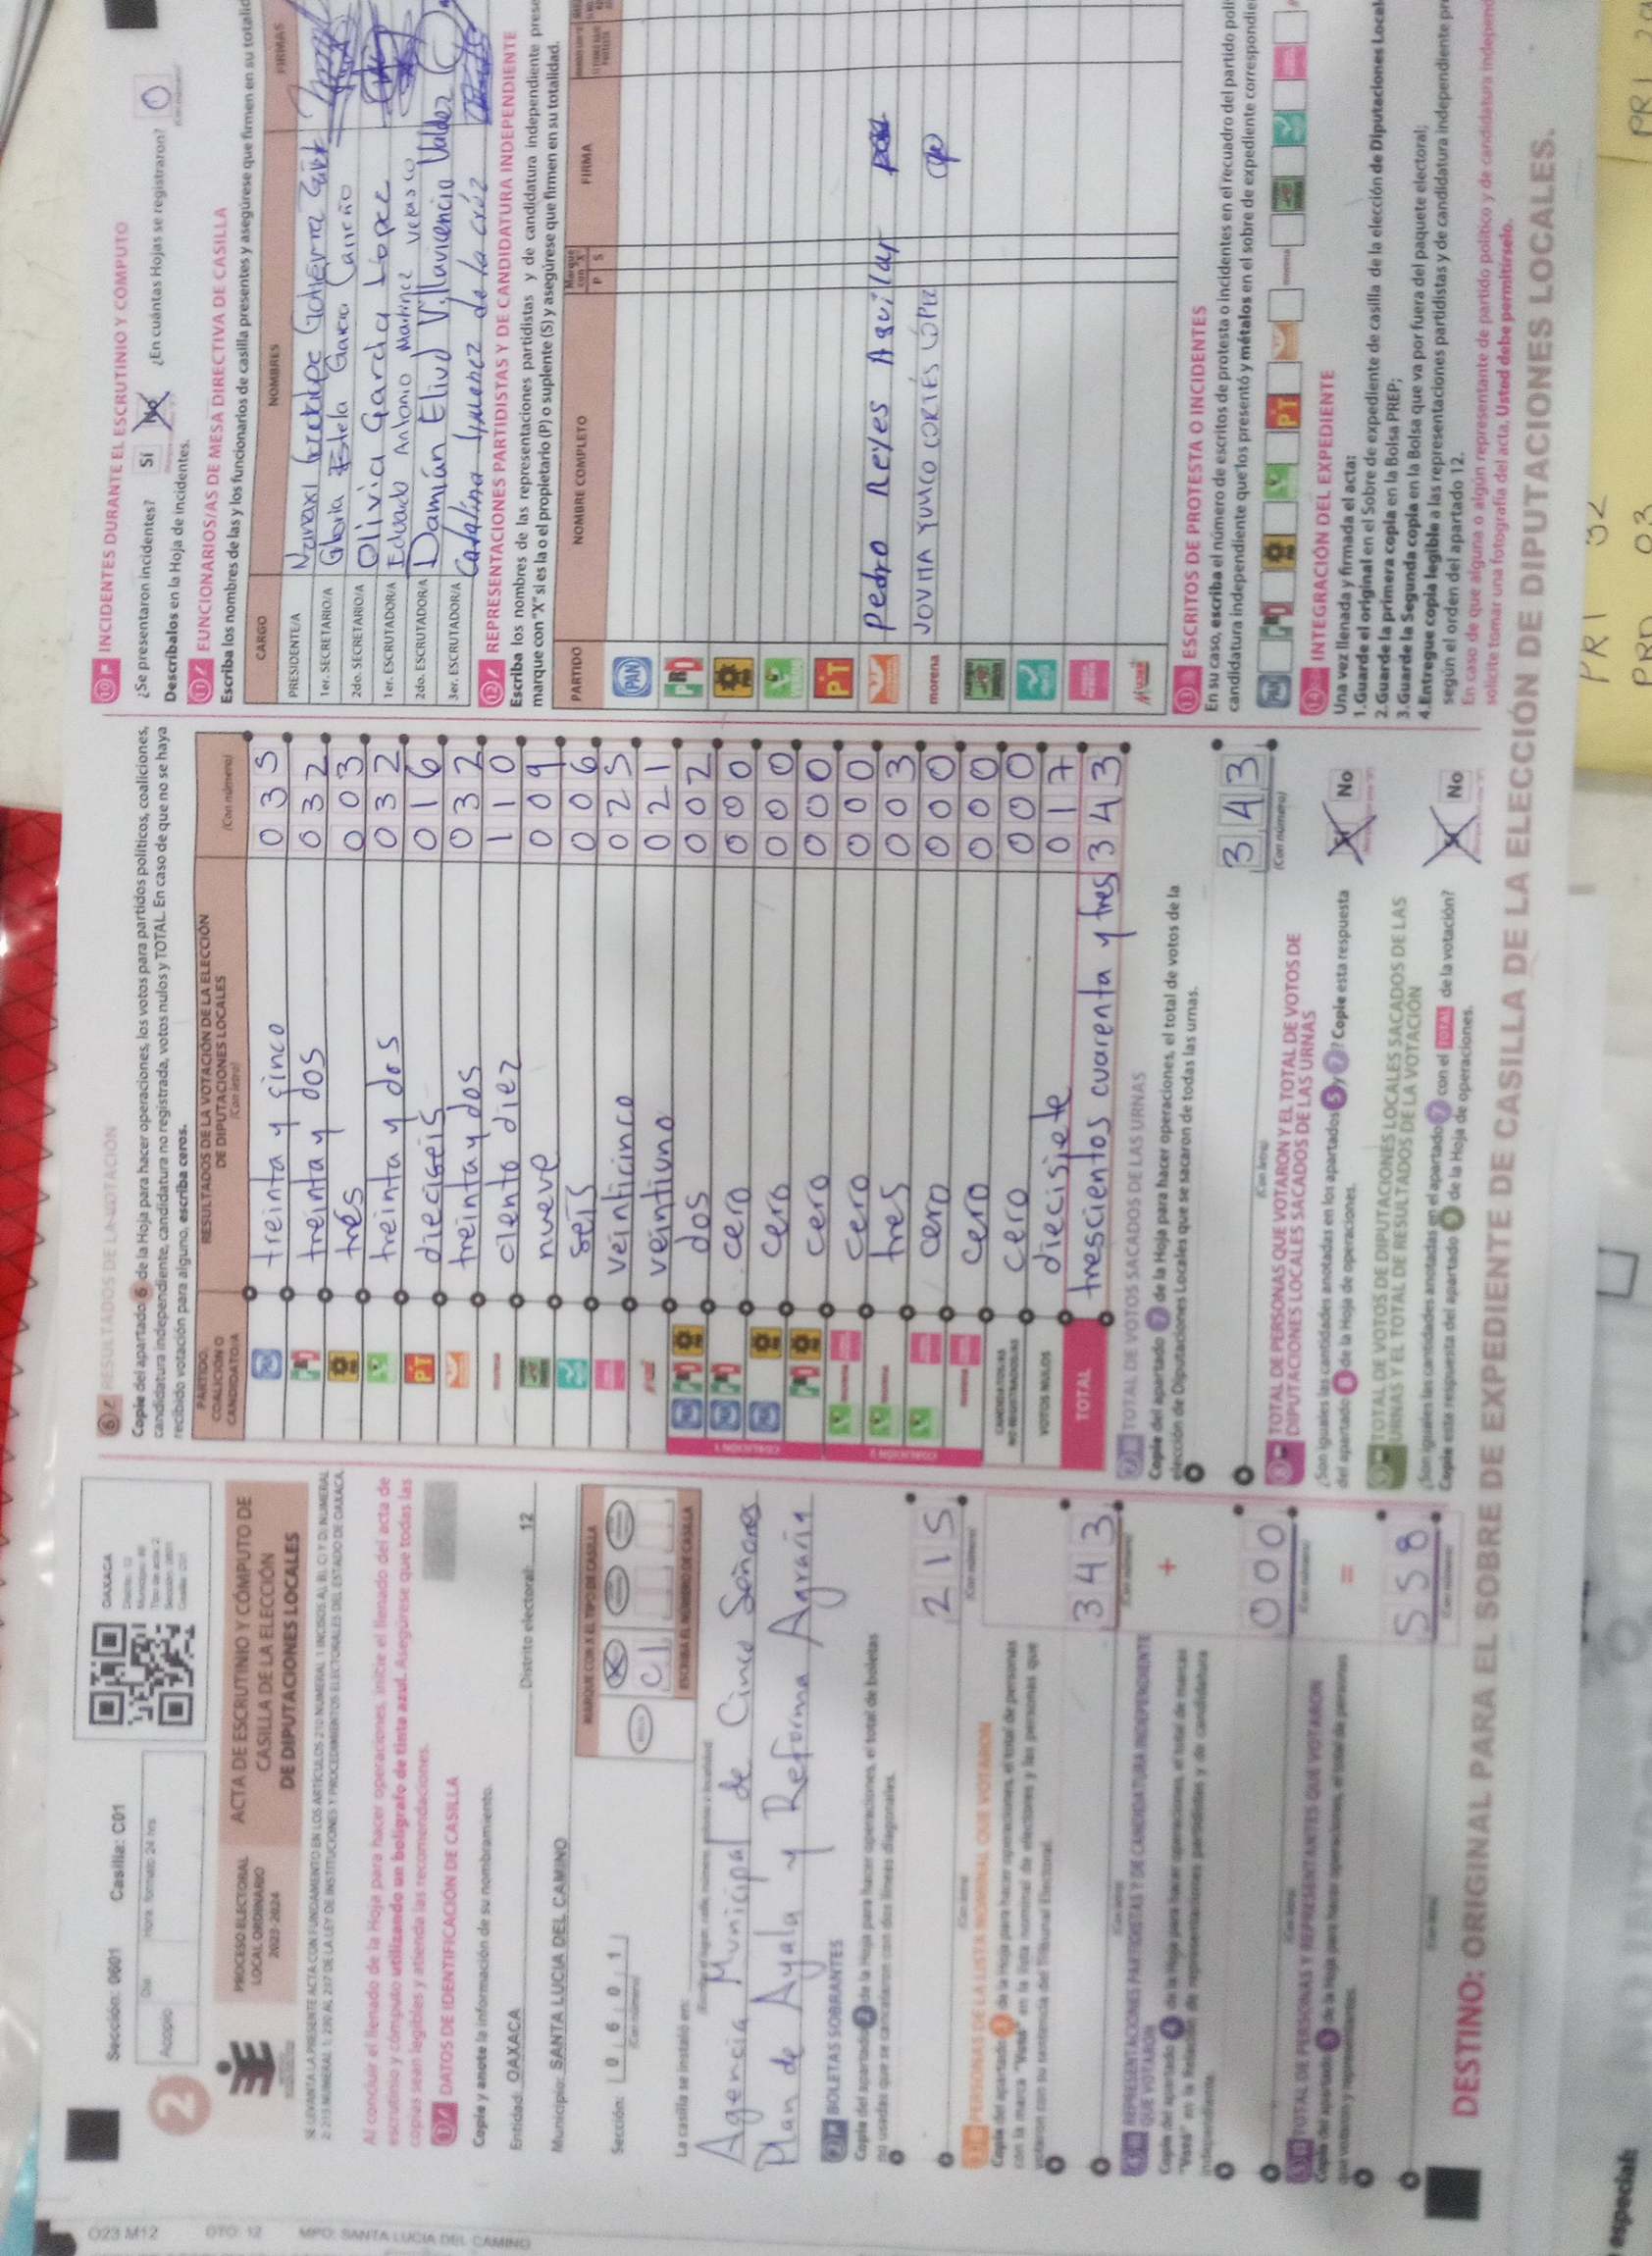 O23 M12
DTO: 12
MPO: SANTA LUCIA DEL CAMINO
Sección: 0601 Casilla: C01
2
Acopio
Día
Hora formato 24 hrs
OAXACA
PROCESO ELECTORAL
LOCAL ORDINARIO
2023-2024
ACTA DE ESCRUTINIO Y CÓMPUTO DE
CASILLA DE LA ELECCIÓN
DE DIPUTACIONES LOCALES
Al concluir el llenado de la Hoja para hacer operaciones, inicie el llenado del acta de
escrutinio y cómputo utilizando un bolígrafo de tinta azul. Asegúrese que todas las
copias sean legibles y atienda las recomendaciones.
1 DATOS DE IDENTIFICACIÓN DE CASILLA
Copie y anote la información de su nombramiento.
Entidad: OAXACA Distrito electoral: 12
Municipio: SANTA LUCIA DEL CAMINO
Sección: 0 6 0 1
(Con número)
MARQUE CON X EL TIPO DE CASILLA
C1
ESCRIBA EL NÚMERO DE CASILLA
La casilla se instaló en:
Agencia Municipal de Cinco Señores
Plan de Ayala y Reforma Agraria
2 BOLETAS SOBRANTES
Copie del apartado 2 de la Hoja para hacer operaciones, el total de boletas
no usadas que se cancelaron con dos líneas diagonales.
215
(Con número)
3 PERSONAS DE LA LISTA NOMINAL QUE VOTARON
Copie del apartado 3 de la Hoja para hacer operaciones, el total de personas
con la marca "Votó" en la lista nominal de electores y las personas que
votaron con su sentencia del Tribunal Electoral.
343
+
4 REPRESENTACIONES PARTIDISTAS Y DE CANDIDATURA INDEPENDIENTE
QUE VOTARON
Copie del apartado 4 de la Hoja para hacer operaciones, el total de marcas
"Votó" en la Relación de representaciones partidistas y de candidatura
independiente.
000
=
5 TOTAL DE PERSONAS Y REPRESENTANTES QUE VOTARON
Copie del apartado 5 de la Hoja para hacer operaciones, el total de personas
que votaron y representantes.
558
6 RESULTADOS DE LA VOTACIÓN
Copie del apartado 6 de la Hoja para hacer operaciones, los votos para partidos políticos, coaliciones,
candidatura independiente, candidatura no registrada, votos nulos y TOTAL. En caso de que no se haya
recibido votación para alguno, escriba ceros.
PARTIDO, COALICIÓN O CANDIDATO/A
RESULTADOS DE LA VOTACIÓN DE LA ELECCIÓN
DE DIPUTACIONES LOCALES
(Con letra)
(Con número)
treinta y cinco 035
PRI treinta y dos 032
tres 003
treinta y dos 032
PT dieciseis 016
treinta y dos 032
ciento diez 110
nueve 009
seis 006
veinticinco 025
veintiuno 021
dos 002
cero 000
cero 000
cero 000
cero 000
tres 003
cero 000
cero 000
CANDIDATURAS NO REGISTRADAS cero 000
VOTOS NULOS diecisiete 017
TOTAL trescientos cuarenta y tres 343
7 TOTAL DE VOTOS SACADOS DE LAS URNAS
Copie del apartado 7 de la Hoja para hacer operaciones, el total de votos de la
elección de Diputaciones Locales que se sacaron de todas las urnas.
343
(Con letra) (Con número)
8 TOTAL DE PERSONAS QUE VOTARON Y EL TOTAL DE VOTOS DE
DIPUTACIONES LOCALES SACADOS DE LAS URNAS
¿Son iguales las cantidades anotadas en los apartados 5 y 7? Copie esta respuesta
del apartado 8 de la Hoja de operaciones.
No
9 TOTAL DE VOTOS DE DIPUTACIONES LOCALES SACADOS DE LAS
URNAS Y EL TOTAL DE RESULTADOS DE LA VOTACIÓN
¿Son iguales las cantidades anotadas en el apartado 7 con el TOTAL de la votación?
Copie esta respuesta del apartado 9 de la Hoja de operaciones.
No
10 INCIDENTES DURANTE EL ESCRUTINIO Y CÓMPUTO
¿Se presentaron incidentes? Sí No ¿En cuántas Hojas se registraron? 0
Descríbalos en la Hoja de incidentes.
11 FUNCIONARIOS/AS DE MESA DIRECTIVA DE CASILLA
Escriba los nombres de las y los funcionarios de casilla presentes y asegúrese que firmen en su totalid
CARGO NOMBRES FIRMAS
PRESIDENTE/A
1er. SECRETARIO/A Gloria Estela Garcia Carreño
2do. SECRETARIO/A Olivia Garcia López
1er. ESCRUTADOR/A Eduado Antonio Martinez Velasco
2do. ESCRUTADOR/A Damián Eliud Villavicencio Valdez
3er. ESCRUTADOR/A Catalina Jimenez de la cruz
12 REPRESENTACIONES PARTIDISTAS Y DE CANDIDATURA INDEPENDIENTE
Escriba los nombres de las representaciones partidistas y de candidatura independiente prese
marque con "X" si es la o el propietario (P) o suplente (S) y asegúrese que firmen en su totalidad.
PARTIDO NOMBRE COMPLETO Marque con "X" P S FIRMA
PAN
PRI
VERDE
PT
Pedro Reyes Aguilar
morena JOVITA YUNCO CORTÉS LÓPEZ
13 ESCRITOS DE PROTESTA O INCIDENTES
En su caso, escriba el número de escritos de protesta o incidentes en el recuadro del partido polít
candidatura independiente que los presentó y métalos en el sobre de expediente correspondier
PAN PRI PT morena
14 INTEGRACIÓN DEL EXPEDIENTE
Una vez llenada y firmada el acta:
1.Guarde el original en el Sobre de expediente de casilla de la elección de Diputaciones Local
2.Guarde la primera copia en la Bolsa PREP;
3.Guarde la Segunda copia en la Bolsa que va por fuera del paquete electoral;
4.Entregue copia legible a las representaciones partidistas y de candidatura independiente pre
según el orden del apartado 12.
En caso de que alguna o algún representante de partido político y de candidatura independ
solicite tomar una fotografía del acta, Usted debe permitírselo.
DESTINO: ORIGINAL PARA EL SOBRE DE EXPEDIENTE DE CASILLA DE LA ELECCIÓN DE DIPUTACIONES LOCALES.
PRI 32
PRD 03
especials